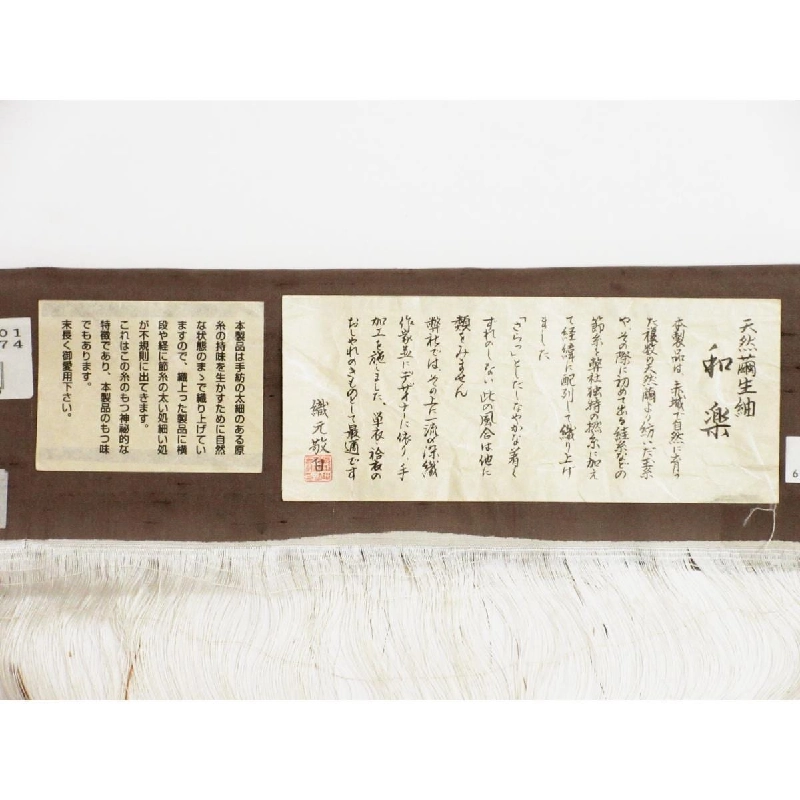 天然繭生紬
和楽
本製品は、赤城で自然に育っ
た種数の天然繭より紡いだ玉糸
や、その際に初めて出る経糸などの
節糸を弊社独特の撚糸に加え
て経緯に配列して織り上げ
ました
「さらっ」としたしなやかな着く
ずれのしない此の風合は他に
類をみません
弊社では、その上た流の深織
作家並にデザイナーに依り、手
加工を施ました、単衣袷衣の
おしゃれのきものとして最適です
織元敬白
本製品は手紡の太細のある原
糸の持味を生かすために自然
な状態のまゝで織り上げてい
ますので、織上った製品に横
段や経に節糸の太い処細い処
が不規則に出てきます。
これはこの糸のもつ神秘的な
特徴であり、本製品のもつ味
でもあります。
末長く御愛用下さい。
01
74
6